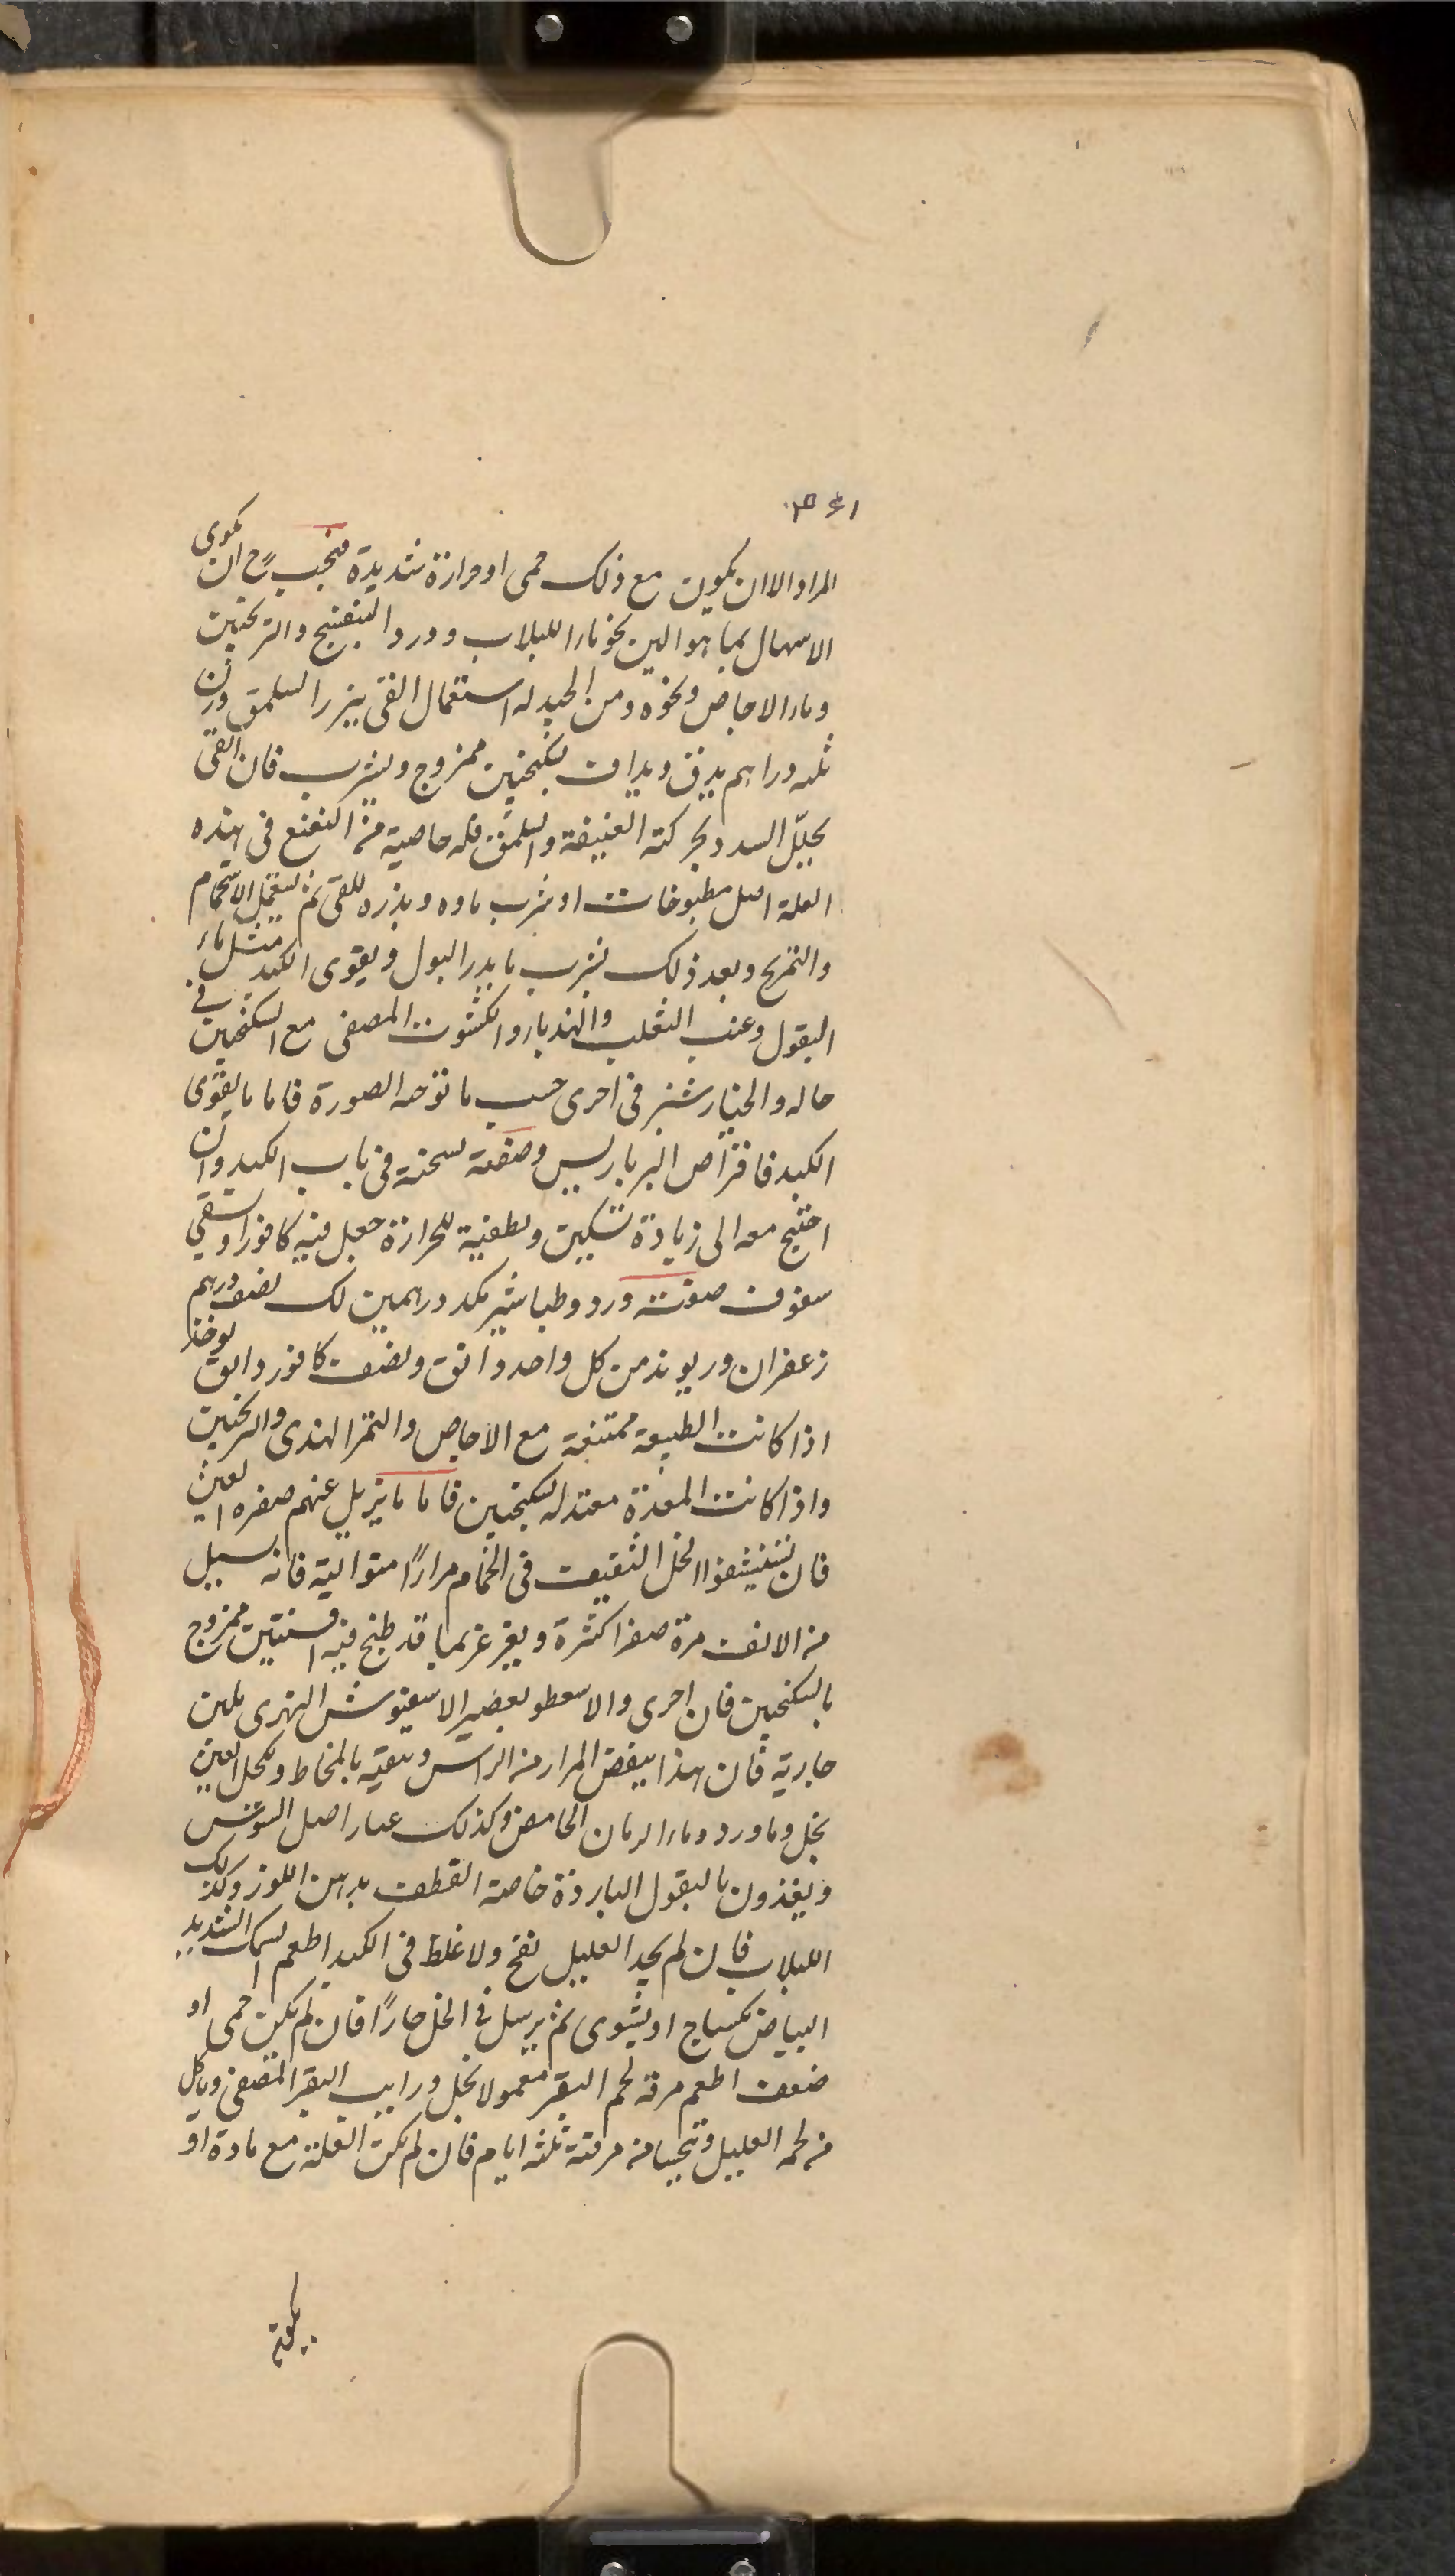 المراد الا ان يكون مع ذلك حمى او حرارة شديدة فيجب ح ان يكون
الاسهال بما هو الين نحو ماء اللبلاب وورد البنفسج والترنجبين
وماء الاجاص ونحوه ومن الجيد له استعمال القئ ببزر السلمق وزن
ثلثه دراهم يدق ويداف بسكنجبين ممزوج ويشرب فان القئ
يحلّل السدد بحركته العنيفة والسلمق فله خاصية من النفع في هذه
العلة اكل مطبوخات او شرب ماوه وبذره للقئ ثم ليستعمل الاستحمام
والتمريخ وبعد ذلك يشرب ما يدر البول ويقوى الكبد مثل ماء
البقول وعنب الثعلب والهندباء والكشوث المصفى مع السكنجبين في
حاله والخيارشنبر في اخرى حسب ما توجه الصورة فاما ما يقوى
الكبد فاقراص البرباريس وصفته نسخته في باب الكبد وان
احتيج معه الى زيادة تسكين وتطفية للحرارة جعل فيه كافورا وسقي
سفوف صفته ورد وطباشير مكد درهمين لك نصف درهم
زعفران وريوند من كل واحد دانق ونصف كافور دانق يوخذ
اذا كانت الطبيعة ممتنعة مع الاجاص والتمر الهندى والترنجبين
واذا كانت المعدة معتدله بسكنجبين فاما ما يزيل عنهم صفره العين
فان يستنشقوا الخل الثقيف في الحمام مرارًا متوالية فانه يسيل
من الانف مرة صفرا كثرة ويغرغر بما قد طبخ فيه افسنتين ممزوج
بالسكنجبين فان اجرى والا سعطو بعصير الاسفيوش النهرى بلبن
جارية فان هذا ينفض المرار من الراس وينقيه بالمخاط ويكحل العين
بخل وماورد وماء الرمان الحامض وكذلك عصار اصل السوس
ويغذون بالبقول الباردة خاصة القطف بدهن اللوز وكذلك
اللبلاب فان لم يجد العليل نفخ ولا غلظ في الكبد اطعم السمك الشديد
البياض سكباج او يشوى ثم يرسل في الخل حارًا فان لم يكن حمى او
ضعف اطعم مرقة لحم البقر معمولا بخل ورايب البقر المصفى وياكل
من لحمه العليل وتحسا من مرقته ثلثه ايام فان لم يكن العلة مع مادة او